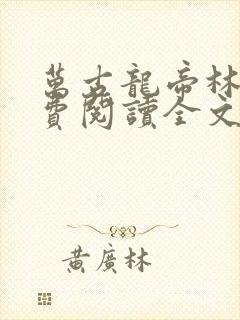 萬古龍帝林
費閱讀全文
黃廣林